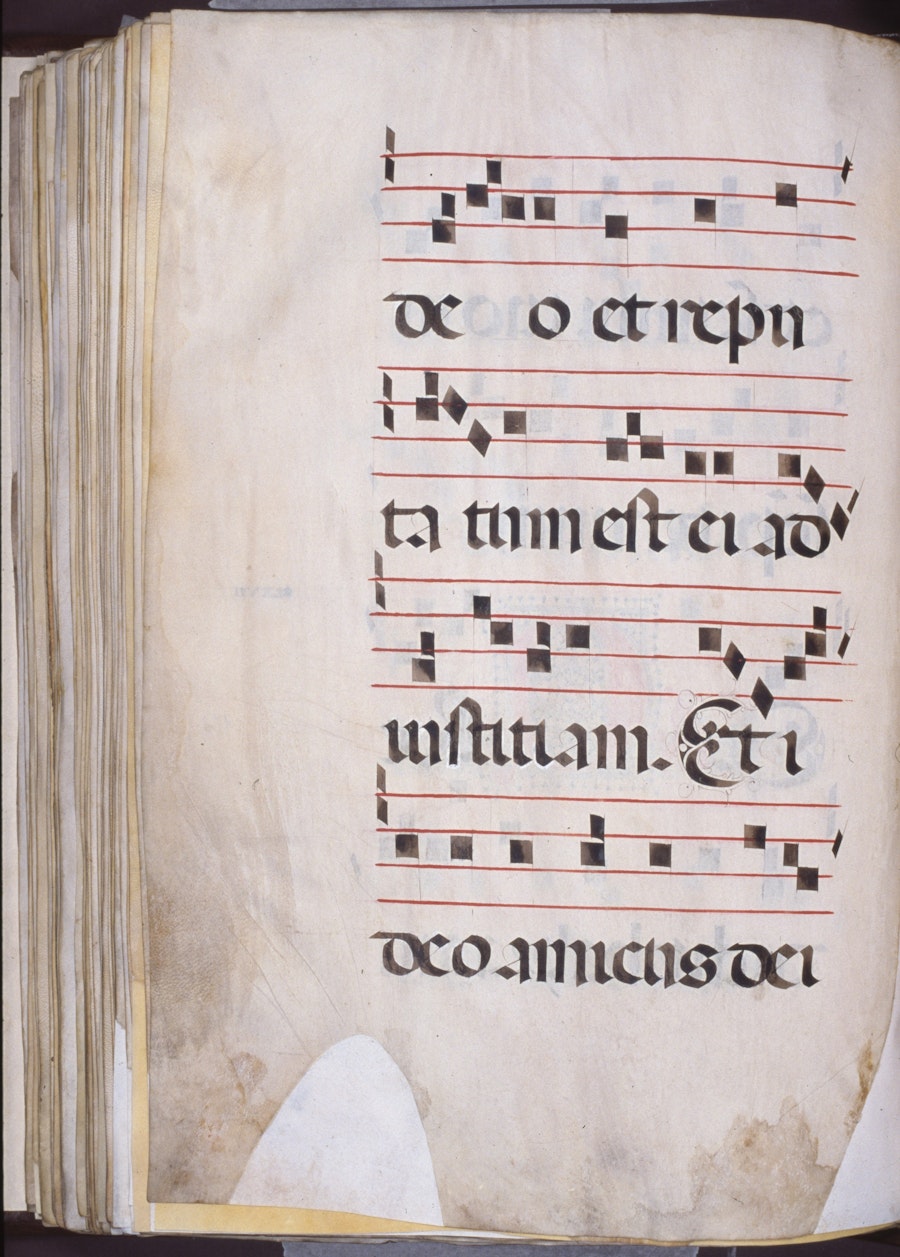 de o et repu
ta tum est ei ad
iustitiam. Et i
deo amicus dei